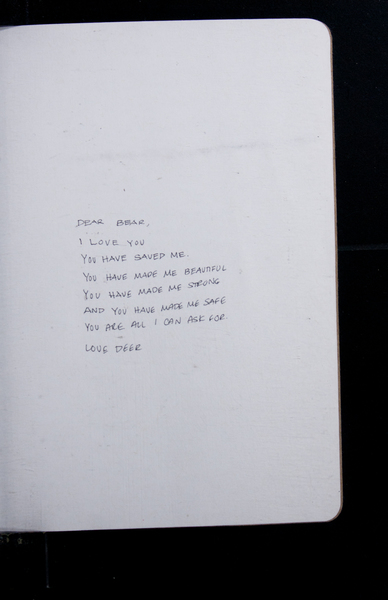 DEAR BEAR,
I LOVE YOU
YOU HAVE SAVED ME.
YOU HAVE MADE ME BEAUTIFUL
YOU HAVE MADE ME STRONG
AND YOU HAVE MADE ME SAFE
YOU ARE ALL I CAN ASK FOR.
LOVE DEER